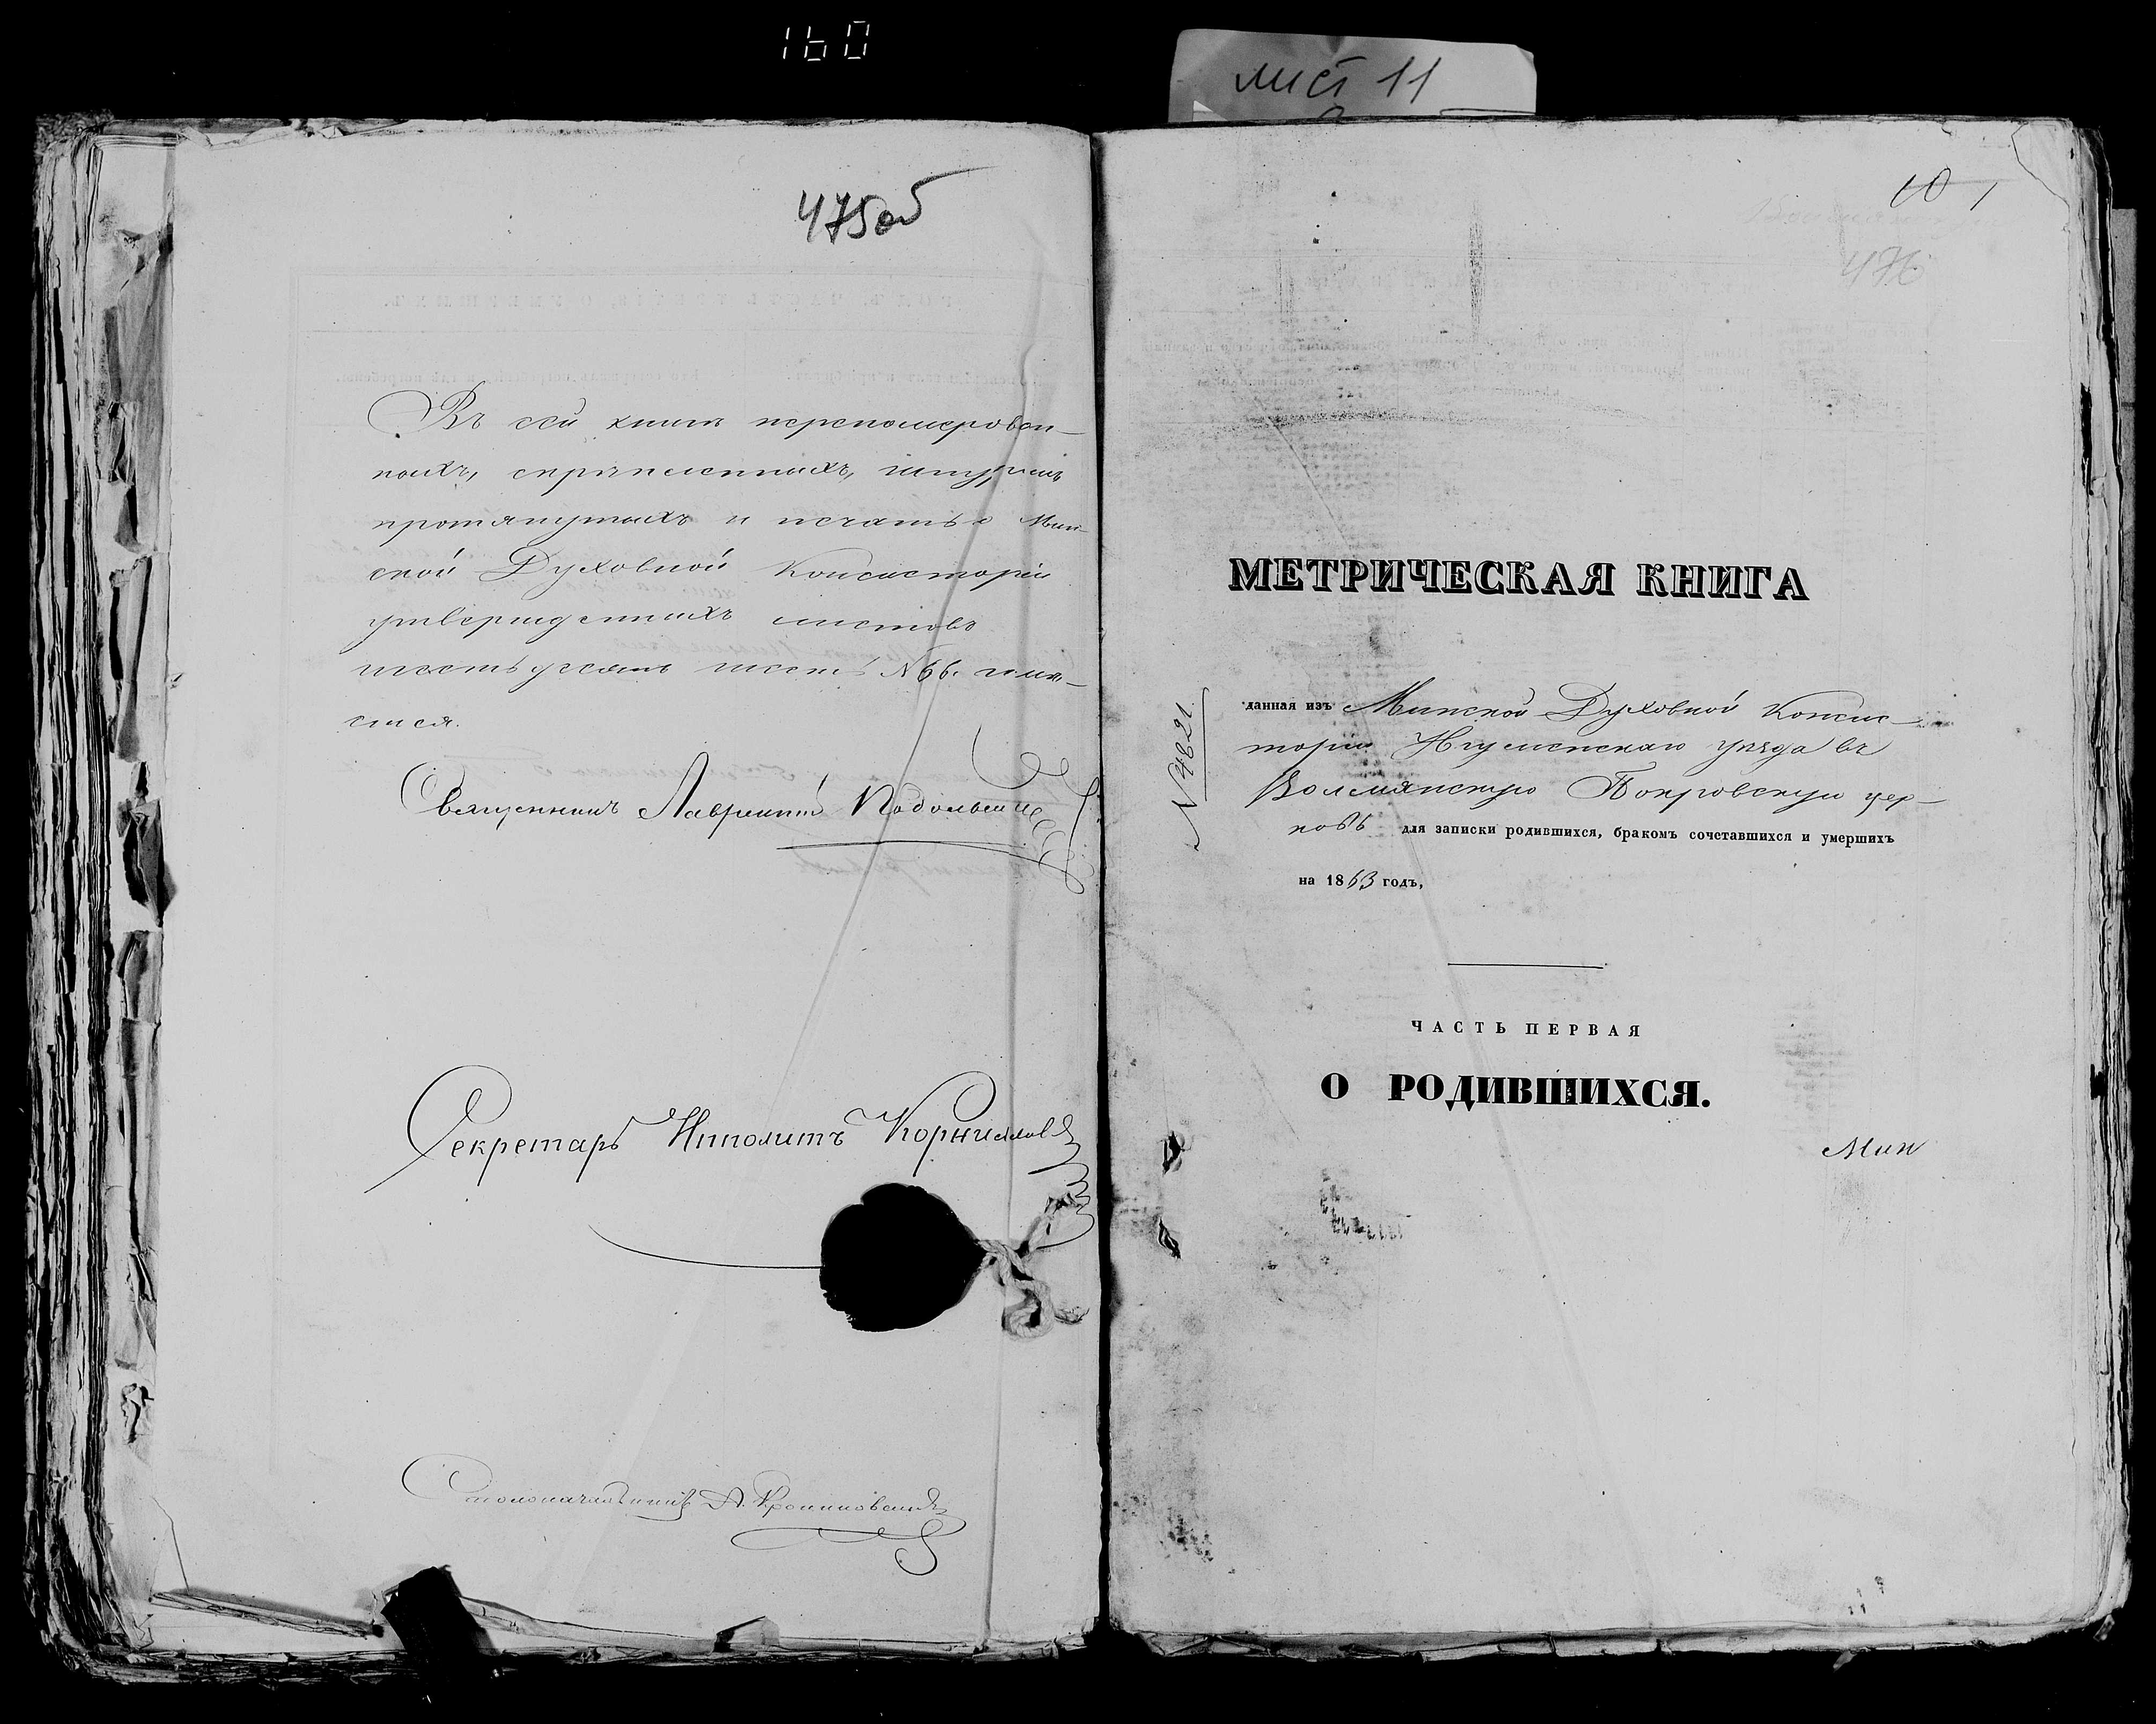 160
лист 11
475об
Въ сей книгѣ перенумерован-
ныхъ, скрѣпленныхъ, шнуромъ
протянутыхъ и печатью Мин-
ской Духовной Консисторіи
утвержденныхъ листовъ
шестьдесятъ шесть № 66. имѣ-
ется.
Священникъ Лаврентій
Секретарь Ипполитъ Корниловъ
Столоначальникъ А.
10 1
476
МЕТРИЧЕСКАЯ КНИГА
№ 4821.
данная изъ Минской Духовной Консис-
торіи Игуменскаго уѣзда въ
Волмянскую Покровскую цер-
ковь для записки родившихся, бракомъ сочетавшихся и умершихъ
на 1863 годъ,
ЧАСТЬ ПЕРВАЯ
О РОДИВШИХСЯ.
Мин